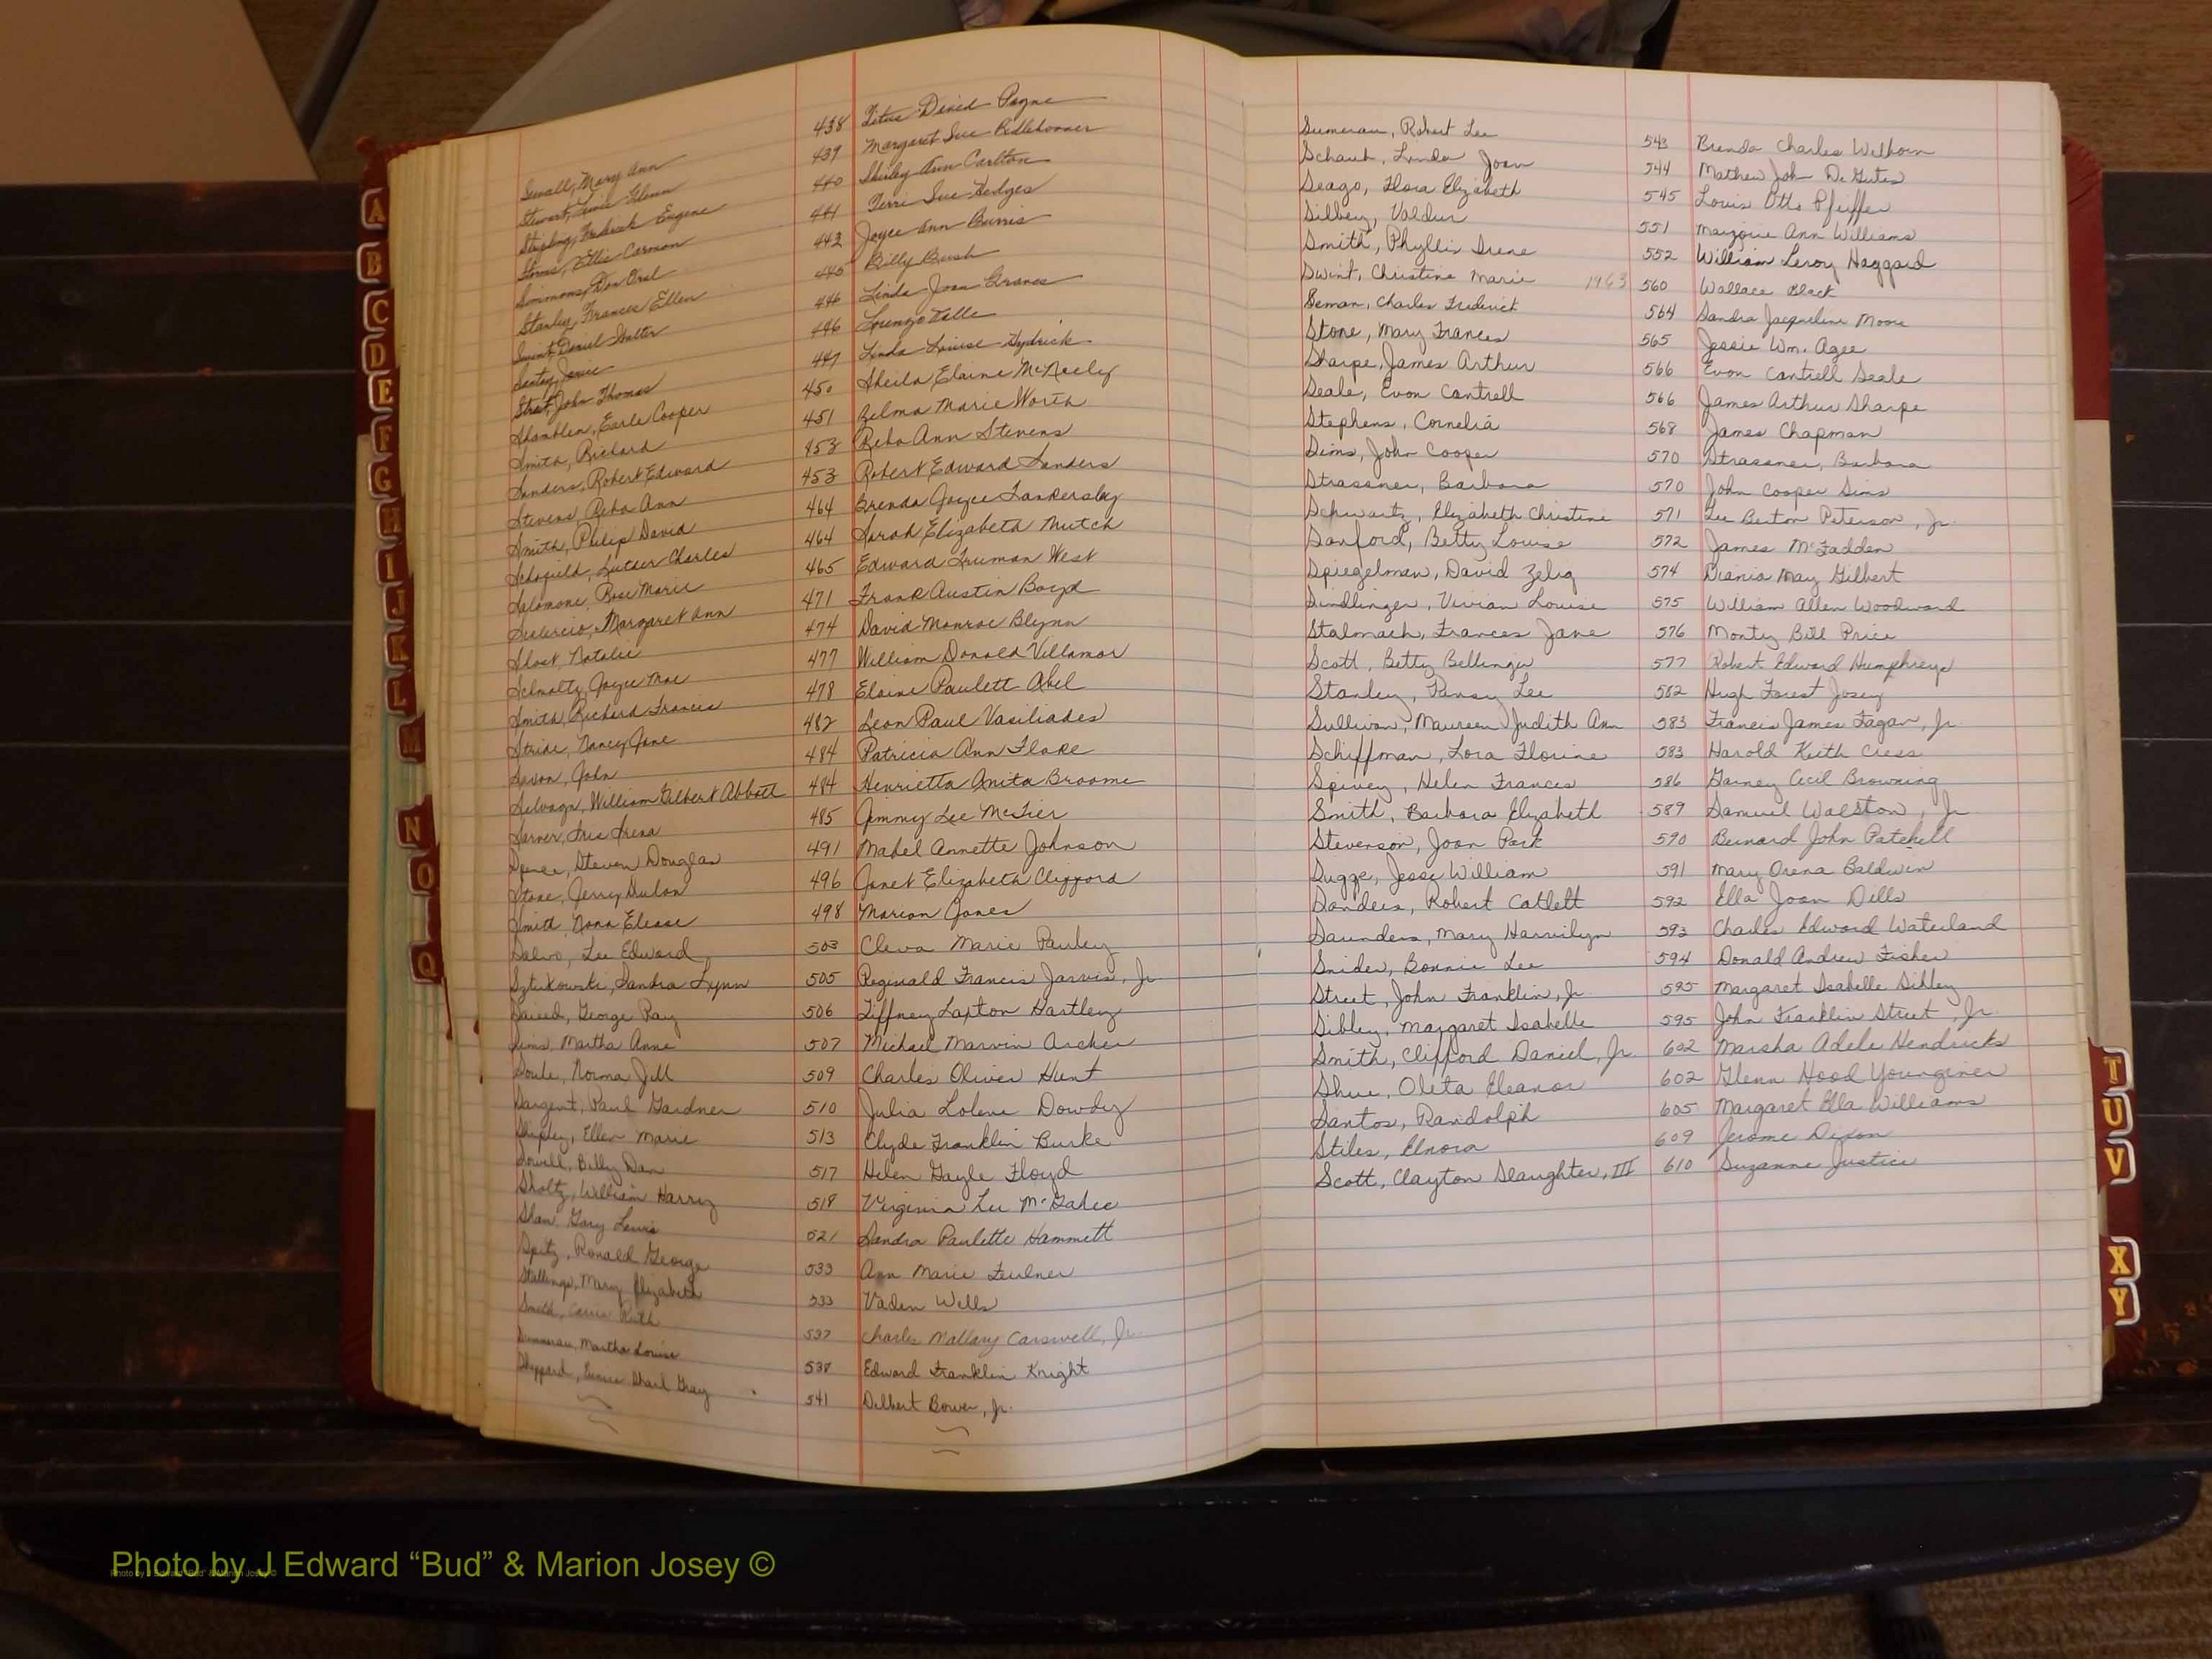 Sewall, Mary Ann 438 Titus David Payne
Stewart, Lewis Glenn 439 Margaret Sue Ridlehoover
Stripling, Frederick Eugene 440 Shirley Ann Carlton
Storms, Ellis Carmon 441 Terri Sue Hedges
Simmons, Don Oral 442 Joyce Ann Burris
Stanley, Frances Ellen 445 Billy Bush
Swint, Daniel Walter 446 Linda Joan Graves
Santay, Janie 446 Lorenzo Talle
Strat, John Thomas 447 Linda Louise Hydrick
Shamblen, Earle Cooper 450 Sheila Elaine McNeely
Smith, Richard 451 Zelma Marie Worth
Sanders, Robert Edward 453 Reba Ann Stevens
Stevens, Reba Ann 453 Robert Edward Sanders
Smith, Philip David 464 Brenda Joyce Tankersley
Schofield, Luther Charles 464 Sarah Elizabeth Mutch
Salomone, Rose Marie 465 Edward Truman West
Margaret Ann 471 Frank Austin Boyd
Sloat, Natalie 474 David Monroe Blynn
Schmaltz, Joyce Mae 477 William Donald Villamor
Smith, Richard Francis 478 Elaine Paulett Abel
Stride, Nancy Jane 482 Leon Paul Vasiliades
Savon, John 484 Patricia Ann Flake
Selvage, William Gilbert Abbott 484 Henrietta Anita Broome
Sarver, Iris Irena 485 Jimmy Lee McTier
Spence, Steven Douglas 491 Mabel Annette Johnson
Stone, Jerry Dulon 496 Janet Elizabeth Clifford
Smith, Nona Elease 498 Marion Jones
Salvo, Lee Edward 503 Cleva Marie Pauley
Sztukowski, Sandra Lynn 505 Reginald Francis Jarvis, Jr.
George Ray 506 Tiffney Laxton Hartley
Sims, Martha Anne 507 Michael Marvin Archer
Soule, Norma Jill 509 Charles Oliver Hunt
Sargent, Paul Gardner 510 Julia Lolene Dowdy
Shipley, Ellen Marie 513 Clyde Franklin Burke
Sowell, Billy Dan 517 Helen Gayle Floyd
Sholtz, William Harry 518 Virginia Lee McGahee
Shaw, Gary Lewis 521 Sandra Paulette Hammett
Spitz, Ronald George 533 Ann Marie Feulner
Stallings, Mary Elizabeth 533 Vaden Wells
Smith, Carrie Ruth 537 Charles Mallary Carswell, Jr.
Sumerau, Martha Louise 538 Edward Franklin Knight
Sheppard, Eunice Gray 541 Delbert Bower, Jr.
Sumerau, Robert Lee 543 Brenda Charles Welborn
Schaub, Linda Joan 544 Mathew John De Gutis
Seago, Flora Elizabeth 545 Louis Otto Pfeiffer
Silbey, Valdur 551 Marjorie Ann Williams
Smith, Phyllis Irene 552 William Leroy Haggard
Swint, Christine Marie 1963 560 Wallace Black
Seman, Charles Frederick 564 Sandra Jacqueline Moore
Stone, Mary Frances 565 Jessie Wm. Agee
Sharpe, James Arthur 566 Evon Cantrell Seale
Seale, Evon Cantrell 566 James Arthur Sharpe
Stephens, Cornelia 568 James Chapman
Sims, John Cooper 570 Strassner, Barbara
Strassner, Barbara 570 John Cooper Sims
Schwartz, Elizabeth Christine 571 Lee Berton Peterson, Jr.
Sanford, Betty Louise 572 James McFadden
Spiegelman, David Zelig 574 Diania May Gilbert
Sindlinger, Vivian Louise 575 William Allen Woodward
Stalmach, Frances Jane 576 Monty Bill Price
Scott, Betty Bellinger 577 Robert Edward Humphreys
Stanley, Pansy Lee 582 Hugh Forest Josey
Sullivan, Maureen Judith Ann 583 Francis James Fagan, Jr.
Schiffman, Lora Florine 583 Harold Keith Cress
Spivey, Helen Frances 586 Garney Cecil Browning
Smith, Barbara Elizabeth 589 Samuel Walston, Jr.
Stevenson, Joan Park 590 Bernard John Patchell
Suggs, Jesse William 591 Mary Orena Baldwin
Sanders, Robert Catlett 592 Ella Joan Dells
Saunders, Mary Harrilyn 593 Charles Edward Waterland
Snider, Bonnie Lee 594 Donald Andrew Fisher
Street, John Franklin, Jr. 595 Margaret Isabelle Sibley
Sibley, Margaret Isabelle 595 John Franklin Street, Jr.
Smith, Clifford Daniel, Jr. 602 Marsha Adele Hendricks
Shue, Oleta Eleanor 602 Glenn Hood Younginer
Santos, Randolph 605 Margaret Ella Williams
Stiles, Elnora 609 Jerome Dixon
Scott, Clayton Slaughter, III 610 Suzanne Justice
A
B
C
D
E
F
G
H
I
J
K
L
M
N
O
Q
T
U
V
X
Y
Photo by J Edward “Bud” & Marion Josey ©
Photo by J Edward “Bud” & Marion Josey ©